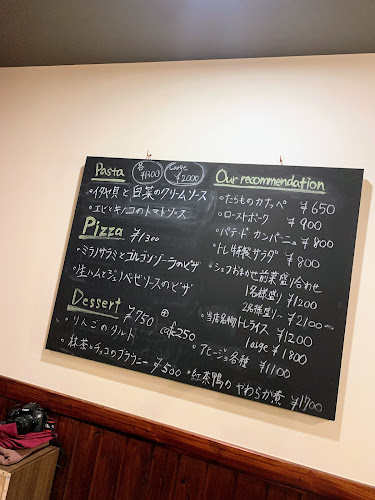 Pasta 各 ¥1300 Large ¥2000
・イタヤ貝と白菜のクリームソース
・エビとキノコのトマトソース
Pizza ¥1300
・ミラノサラミとゴルゴンゾーラのピザ
・生ハムとジェノベーゼソースのピザ
Dessert ¥750
・りんごのタルト
・抹茶とチョコのブラウニー ¥500
Our recommendation
・たらものカナッペ ¥650
・ローストポーク ¥900
・パテ・ド・カンパーニュ ¥800
・トレし特製サラダ ¥800
・シェフおまかせ前菜盛り合わせ
1名様盛り ¥1200
2名様盛り〜 ¥2100〜
・当店名物トルコライス ¥1200
large ¥1800
・アヒージョ各種 ¥1100
・紅茶鴨のやわらか煮 ¥1700